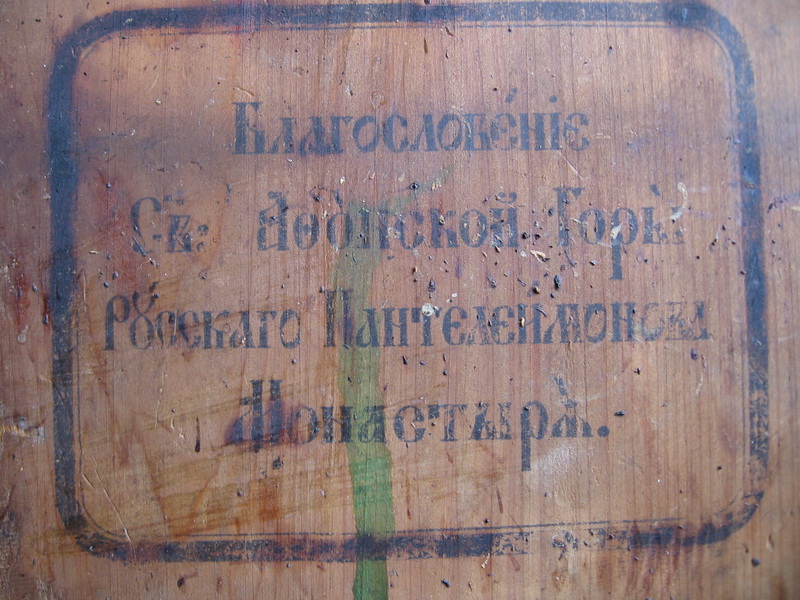 Благослове́нїе
Св: Аѳонской Горы̀
Рꙋсскаго Пантелеймонова
Монастырѧ̀.